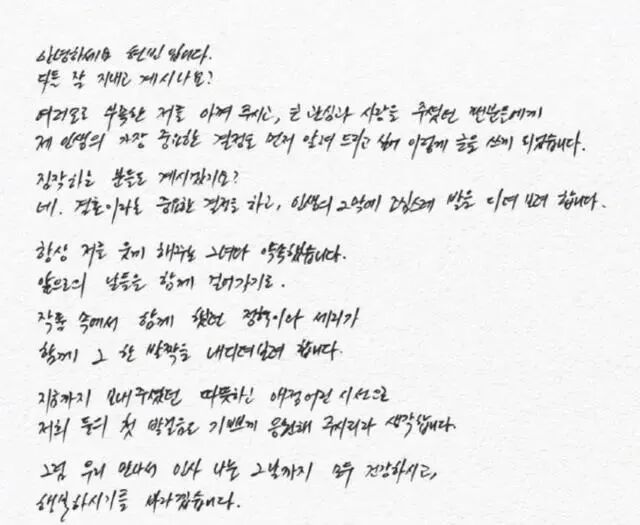 안녕하세요 현빈입니다.
다들 잘 지내고 계시나요?
여러모로 부족한 저를 아껴 주시고, 큰 관심과 사랑을 주셨던 팬분들에게
제 인생의 가장 중요한 결정도 먼저 알려 드리고 싶어 이렇게 글을 쓰게 되었습니다.
짐작하을 분들도 계시겠지요?
네. 결혼이라는 중요한 결정을 하고, 인생의 2막에 조심스레 발을 디뎌 보려 합니다.
항상 저를 웃게 해주는 그녀와 약속했습니다.
앞으로의 날들을 함께 걸어가기로.
작품 속에서 함께 했던 정혁이와 세리가
함께 그 한 발짝을 내디뎌보려 합니다.
지금까지 보내주셨던 따뜻하신 애정어린 시선으로
저희 둘의 첫 발걸음도 기쁘게 응원해 주시리라 생각합니다.
그럼 우리 만나서 인사 나눌 그날까지 모두 건강하시고,
행복하시기를 바라겠습니다.